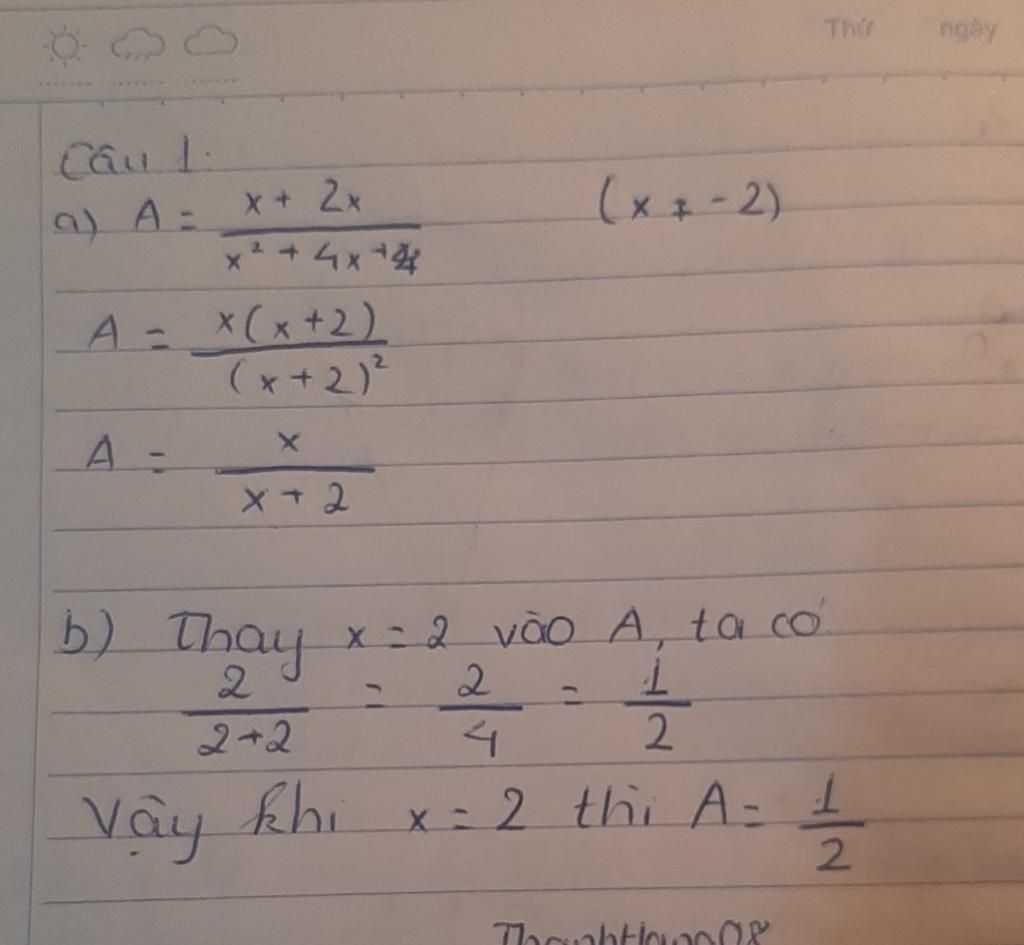 Thứ ngày
Câu 1:
a) A = \frac{x + 2x}{x² + 4x + 4} (x ≠ -2)
A = \frac{x(x+2)}{(x+2)²}
A = \frac{x}{x+2}
b) Thay x = 2 vào A, ta có
\frac{2}{2+2} = \frac{2}{4} = \frac{1}{2}
Vậy khi x = 2 thì A = \frac{1}{2}